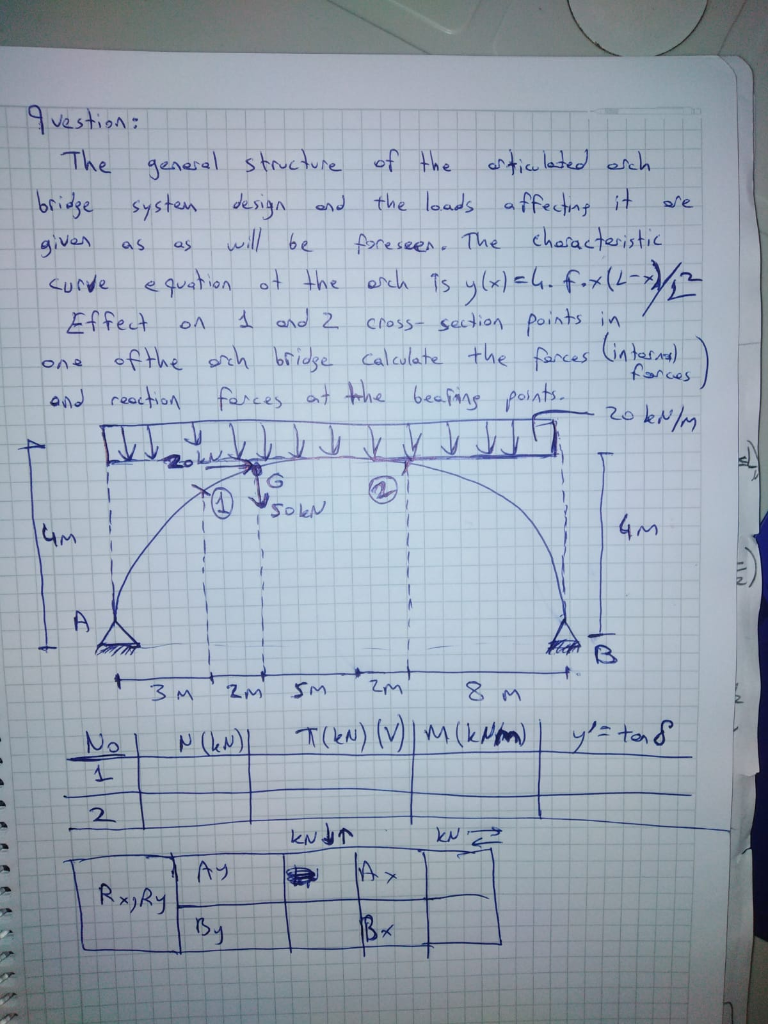 Question:
The general structure of the articulated arch
bridge system design and the loads affecting it are
given as as will be foreseen. The characteristic
curve equation of the arch is y(x)=4.f.x(L-x)/L²
Effect on 1 and 2 cross-section points in
one of the arch bridge calculate the forces (internal forces)
and reaction forces at the bearing points.
20 kN/m
20kN
G
1
2
50kN
4m
4m
A
B
3 m 2m 5m 2m 8 m
No N (kN) T(kN) (V) M (kNm) y'= tan δ
1
2
kN ↓↑ kN ⇄
Rx, Ry Ay Ax
By Bx